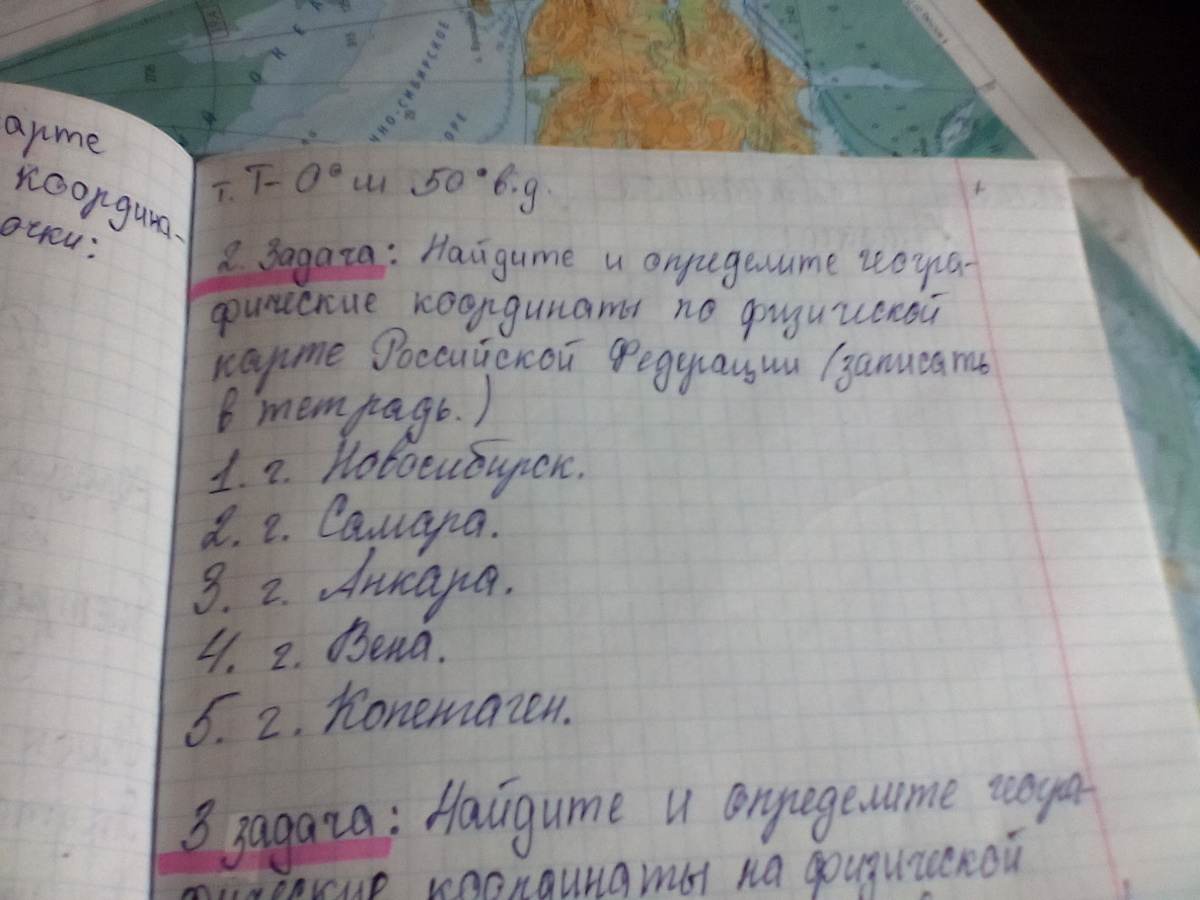 ОКЕА
НО-СИБИРСКОЕ
ОРЕ
арте
координа-
очки:
т. Т- 0° ш 50° в.д.
2. Задача: Найдите и определите геогра-
фические координаты по физической
карте Российской Федерации (записать
в тетрадь.)
1. г. Новосибирск.
2. г. Самара.
3. г. Анкара.
4. г. Вена.
5. г. Копенгаген.
3 задача: Найдите и определите геогра-
фические координаты на физической